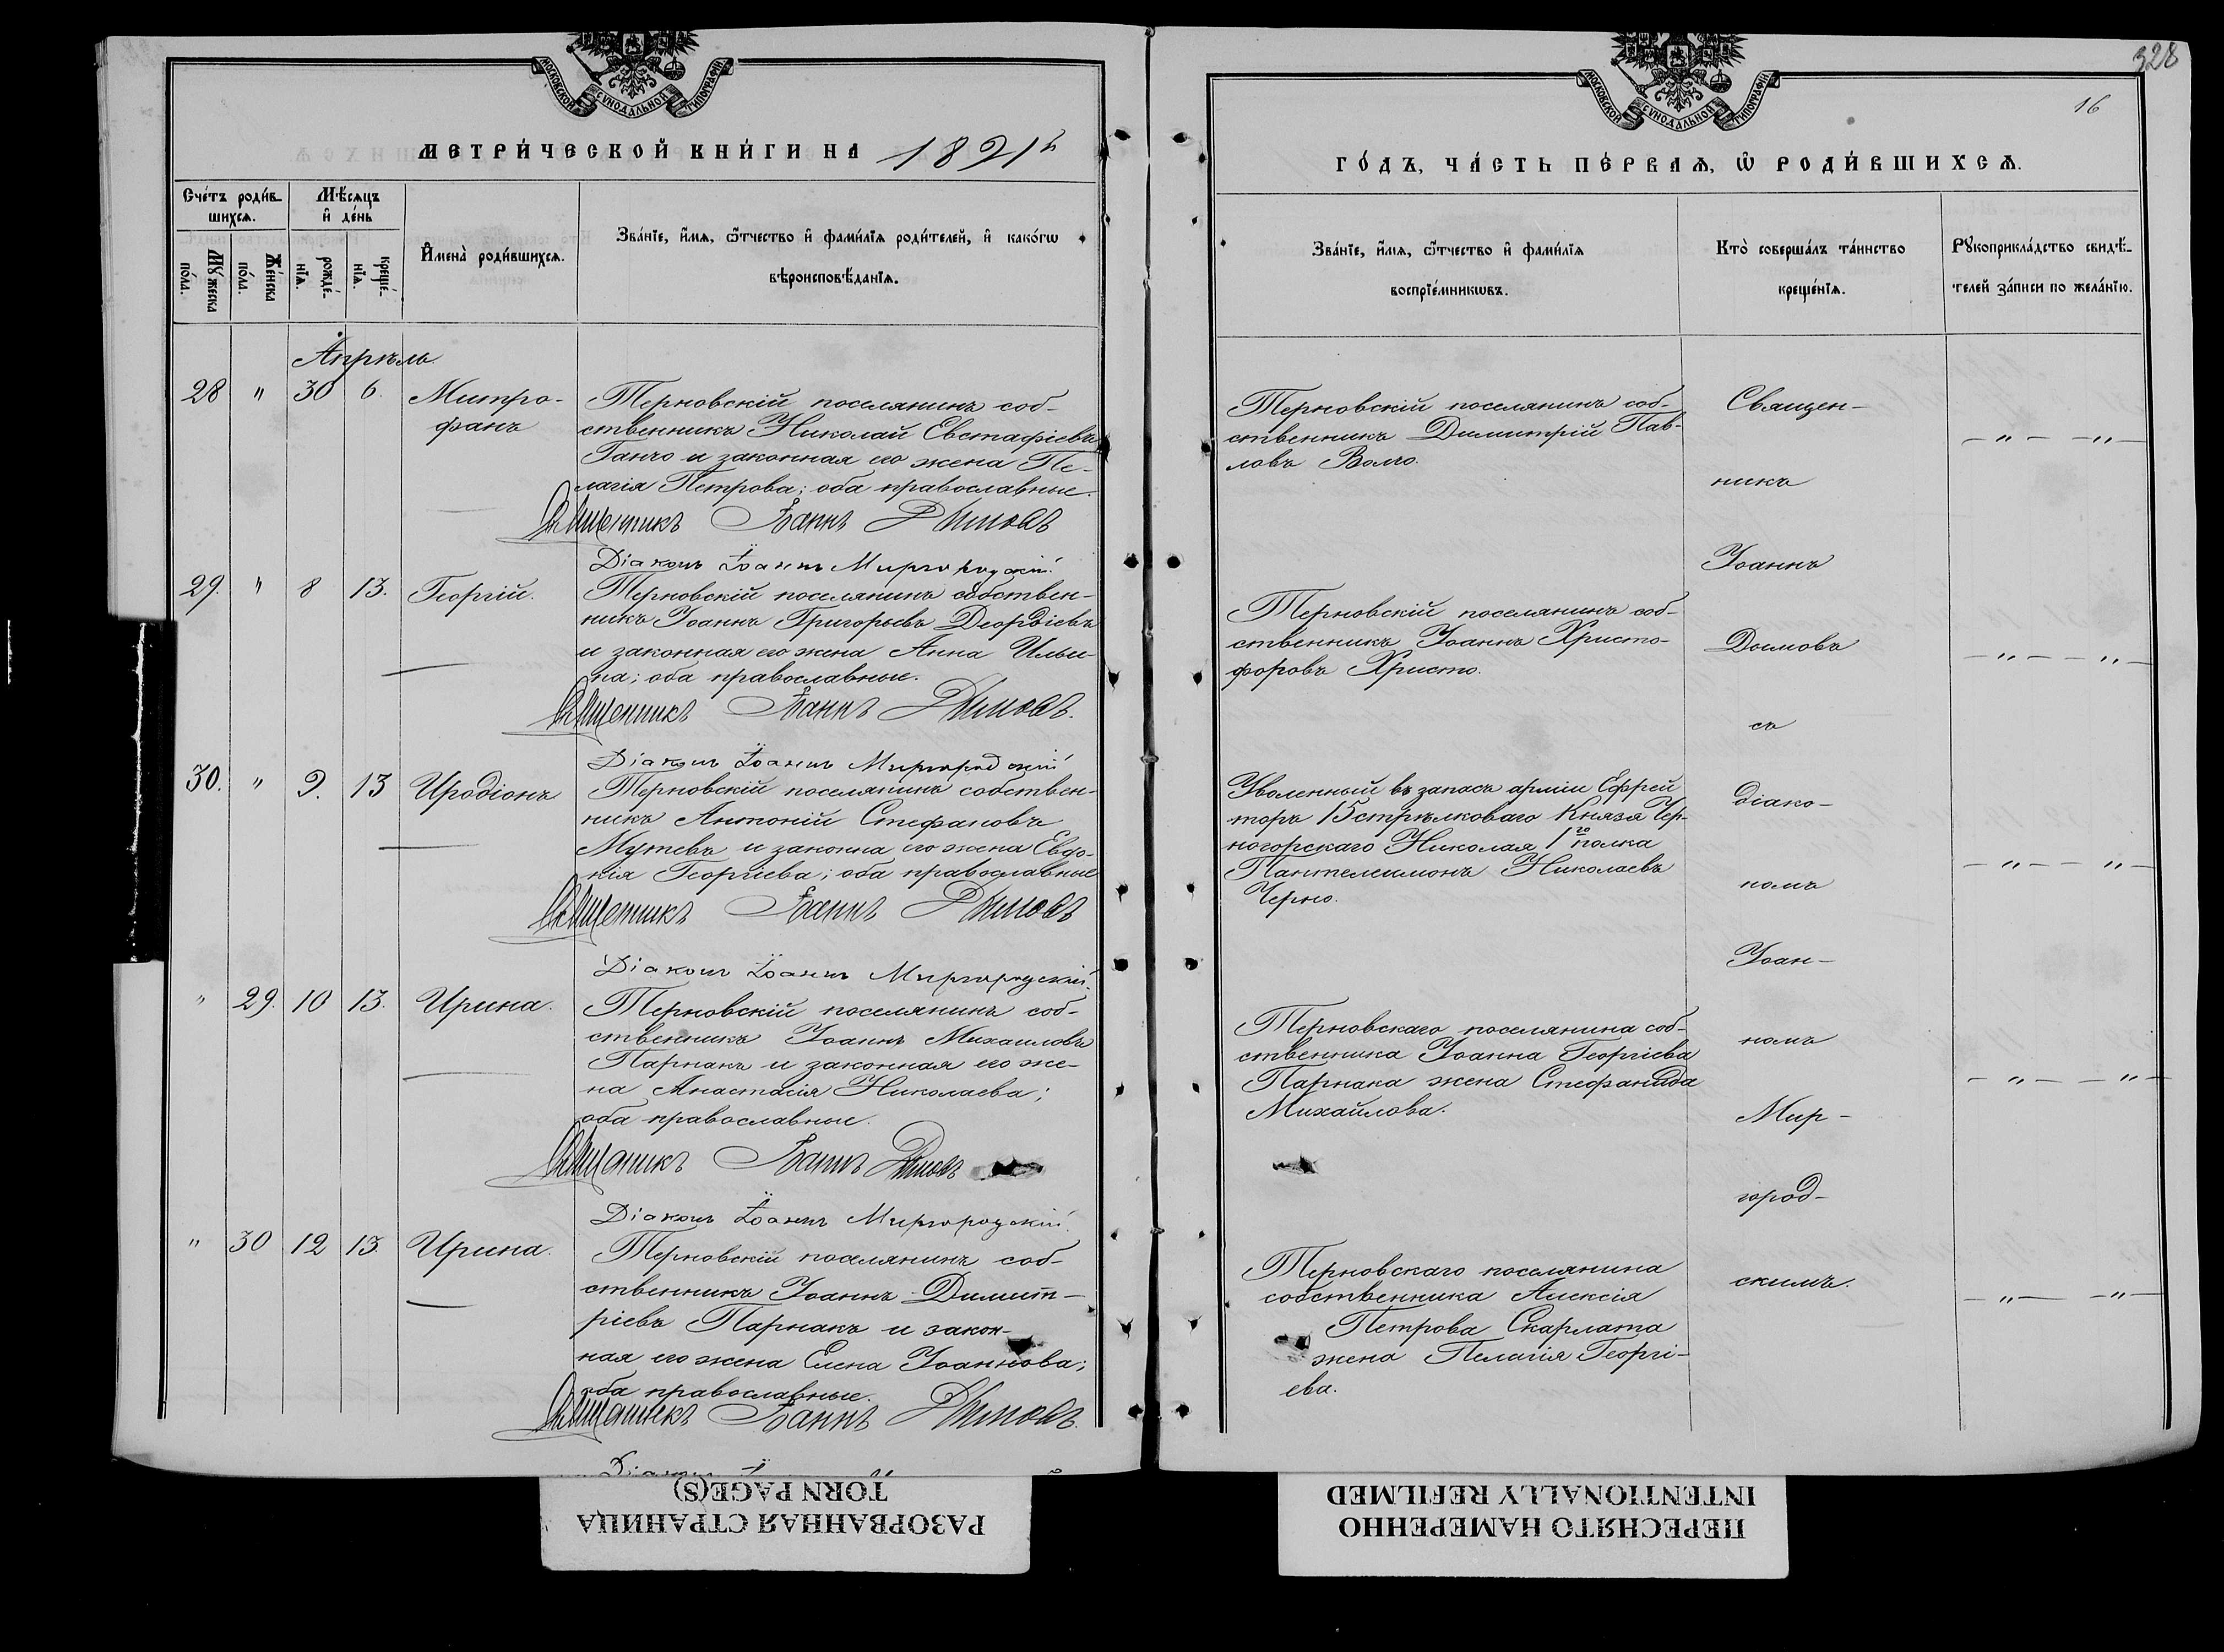 МОСКОВСКОЙ СУНОДАЛЬНОЙ ТИПОГРАФИИ
МЕТРИ́ЧЕСКОЙ КНИ́ГИ НА 1891 г.
Сче́тъ роди́вшихсѧ.
Мѣ́сѧцъ и҆ де́нь
Му́жеска по́ла.
Же́нска по́ла.
рожде́нїѧ.
креще́нїѧ.
И҆мена̀ роди́вшихсѧ.
Зва́нїе, и҆́мѧ, ѻ҆́тчество и҆ фами́лїѧ роди́телей, и҆ како́гѡ
вѣроисповѣ́данїѧ.
Апрѣль.
28 " 30 6. Митро-
фанъ
Терновскій поселянинъ соб-
ственникъ Николай Евстафіевъ
Ганчо и законная его жена Пе-
лагія Петрова; оба православные.
Священникъ Іоаннъ Димовъ
Діаконъ Іоаннъ Миргородскій
29. " 8 13. Георгій.
Терновскій поселянинъ собствен-
никъ Іоаннъ Григорьевъ Деордіевъ
и законная его жена Анна Ильи-
на; оба православные.
Священникъ Іоаннъ Димовъ.
Діаконъ Іоаннъ Миргородскій
30. " 9. 13 Иродіонъ
Терновскій поселянинъ собствен-
никъ Антоній Стефановъ
Мутевъ и законна его жена Евдо-
кія Георгіева; оба православные
Священникъ Іоаннъ Димовъ
Діаконъ Іоаннъ Миргородскій.
" 29. 10 13. Ирина.
Терновскій поселянинъ соб-
ственникъ Іоаннъ Михаиловъ
Парнакъ и законная его же-
на Анастасія Николаева;
оба православные.
Священникъ Іоаннъ Димовъ
Діаконъ Іоаннъ Миргородскій.
" 30 12 13. Ирина.
Терновскій поселянинъ соб-
ственникъ Іоаннъ Димит-
ріевъ Парнакъ и закон-
ная его жена Елена Іоаннова;
оба православные.
Священникъ Іоаннъ Димовъ.
328
16
МОСКОВСКОЙ СУНОДАЛЬНОЙ ТИПОГРАФИИ
ГО́ДЪ, ЧА́СТЬ ПЕ́РВАѦ, Ѡ҆ РОДИ́ВШИХСѦ.
Зва́нїе, и҆́мѧ, ѻ҆́тчество и҆ фами́лїѧ
воспрїе́мникѡвъ.
Кто̀ соверша́лъ та́инство
креще́нїѧ.
Рꙋкоприкла́дство свидѣ́-
телей за́писи по жела́нїю.
Терновскій поселянинъ соб-
ственникъ Димитрій Пав-
ловъ Волчо.
Терновскій поселянинъ соб-
ственникъ Іоаннъ Христо-
форовъ Христо.
Уволенный въ запасъ арміи Ефрей
торъ 15 стрѣлковаго Князя Чер-
ногорскаго Николая 1го полка
Пантелеимонъ Николаевъ
Черно.
Терновскаго поселянина соб-
ственника Іоанна Георгіева
Парнака жена Стефанида
Михайлова.
Терновскаго поселянина
собственника Алексія
Петрова Скарлата
жена Пелагія Георгі-
ева.
Священ-
никъ
Іоаннъ
Димовъ
съ
діако-
номъ
Іоан-
номъ
Мир-
город-
скимъ.
— " — — " —
— " — — " —
— " — — " —
— " — — " —
— " — — " —
РАЗОРВАННАЯ СТРАНИЦА
TORN PAGE(S)
ПЕРЕСНЯТО НАМЕРЕННО
INTENTIONALLY REFILMED